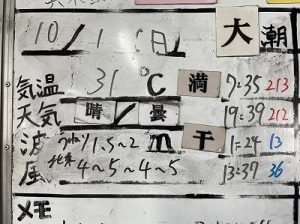 大潮
10/1(日)
気温 31℃ 満 7:35 213
天気 晴/曇 19:39 212
波 うねり1.5~2m 干 1:24 13
風 北東4~5~4~5 13:37 36
メモ